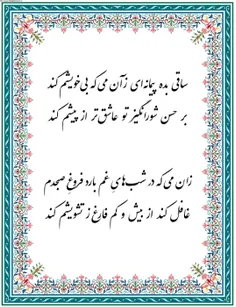 ساقی بده پیمانه‌ای ز آن می که بی‌خویشم کند
بر حسن شورانگیز تو عاشق‌تر از پیشم کند
زان می که در شب‌های غم بارد فروغ صبحدم
غافل کند از بیش و کم فارغ ز تشویشم کند